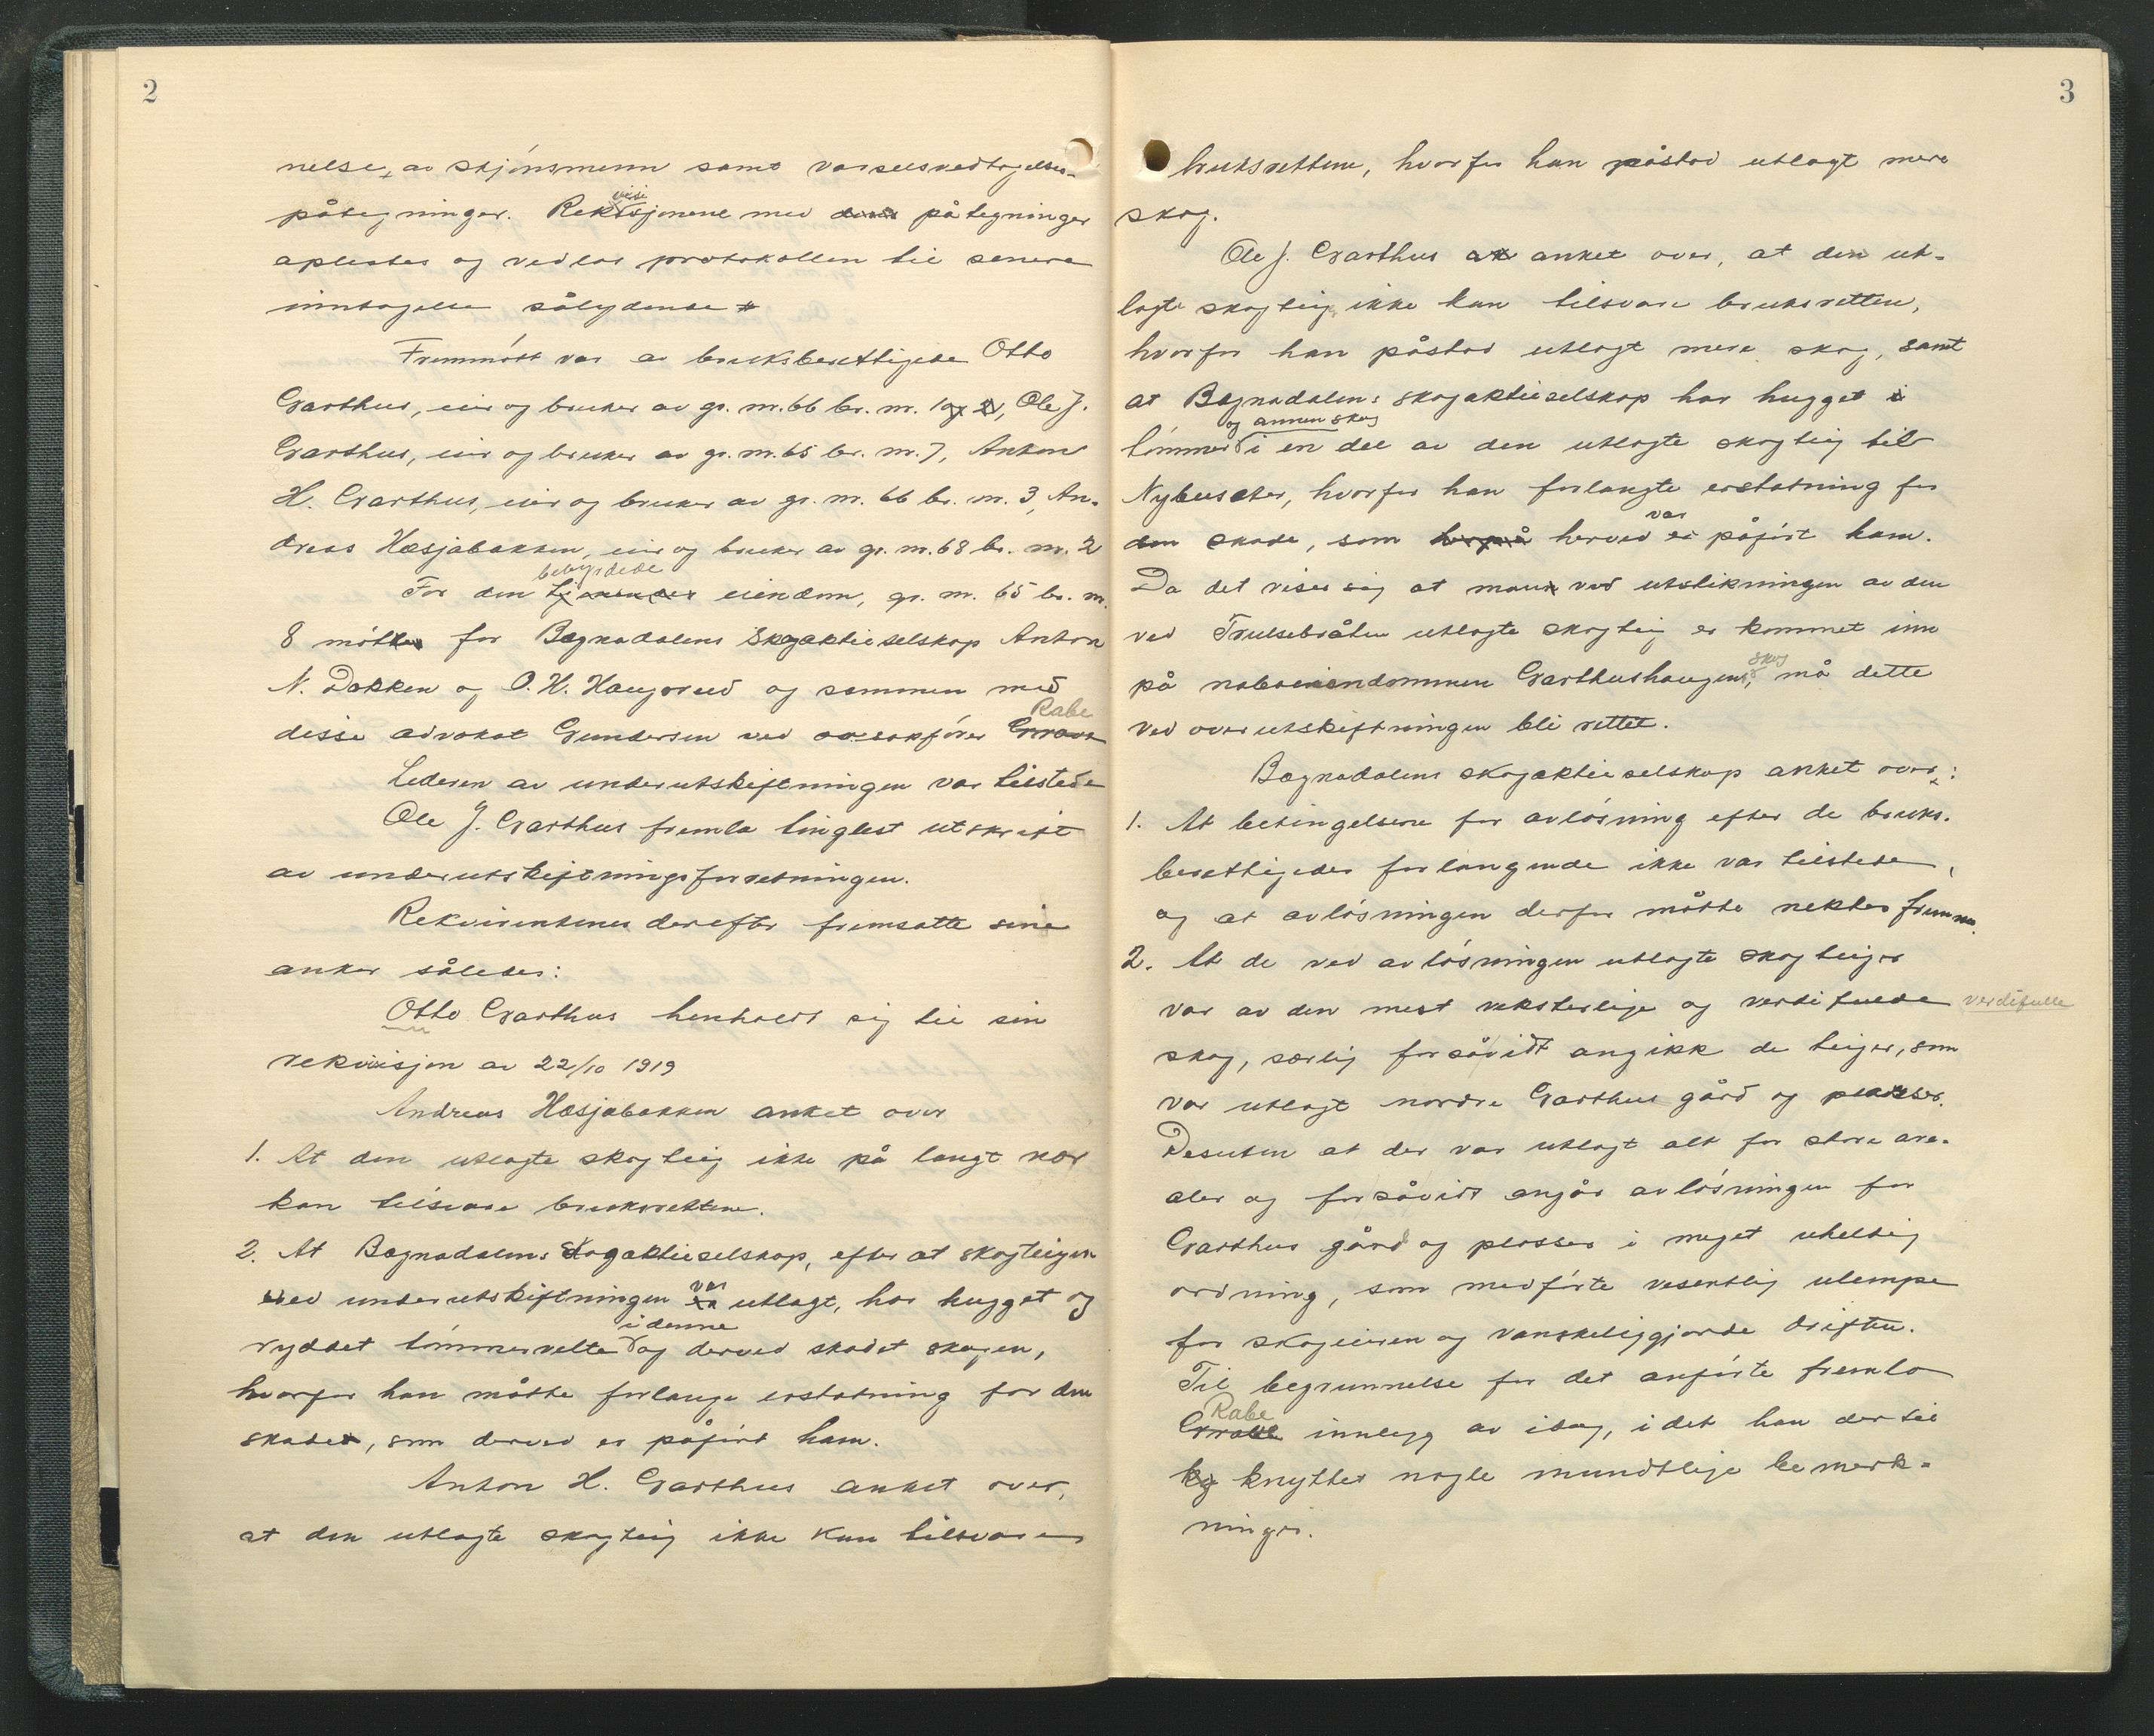 2
nelse av skjönsmenn samt varselsvedtagelses-
påtegninger. Rekvisisjonene med påtegninger
oplestes og vedlas protokollen til senere
inntagelse sålydende
Fremmött var av bruksberettigede Otto
Garthus, eier og bruker av gr. nr. 66 br. nr. 1, Ole J.
Garthus, eier og bruker av gr. nr. 65 br. nr. 7, Anton
H. Garthus, eier og bruker av gr. nr. 66 br. nr. 3, An-
dreas Hæsjabakken, eier og bruker av gr. nr. 68 br. nr. 2
bebyrdede
For den tjenende eiendom, gr. nr. 65 br. nr.
8 mötte for Bægnadalens Skogaktieselskap Anton
N. Dokken og O. H. Haugsrud og sammen med
Rabe
disse advokat Gundersen ved o.r.sakförer
Lederen av underutskiftningen var tilstede
Ole J. Garthus fremla tinglest utskrift
av underutskiftningsforretningen.
Rekvirentenes derefter fremsatte sine
anker således:
Otto Garthus henholdt sig til sin
rekvisisjon av 22/10 1919
Andreas Hæsjabakken anket over
1. At den utlagte skogteig ikke på langt nær
kan tilsvare bruksrettene.
2. At Bægnadalens Skogaktieselskap, efter at skogteigen
var
ved underutskiftningen er utlagt, har hugget og
i denne
ryddet tömmervelte og derved skadet skogen,
hvorfor han måtte forlange erstatning for den
skade, som derved er påfört ham.
Anton H. Garthus anket over,
at den utlagte skogteig ikke kan tilsvare
3
bruksrettene, hvorfor han påstod utlagt mere
skog.
Ole J. Garthus anket over, at den ut-
lagte skogteig ikke kan tilsvare bruksretten,
hvorfor han påstod utlagt mere skog, samt
at Bægnadalens skogaktieselskap har hugget
og annen skog
tömmer i en del av den utlagte skogteig til
Nybuseter, hvorfor han forlangte erstatning for
var
den skade, som herved er påfört ham.
Da det viser sig at man ved utstikningen av den
ved Trulsebråten utlagte skogteig er kommet inn
skog
på naboeiendommen Garthushaugens, må dette
ved overutskiftningen bli rettet.
Bægnadalens skogaktieselskap anket over:
1. At betingelsene for avlösning efter de bruks-
berettigedes forlangende ikke var tilstede,
og at avlösningen derfor måtte nektes fremme.
2. At de ved avlösningen utlagte skogteiger
var av den mest veksterlige og verdifulde verdifulle
skog, særlig forsåvidt angikk de teiger, som
var utlagt nordre Garthus gård og plasser.
Desuten at der var utlagt alt for store are-
aler og forsåvidt angår avlösningen for
Garthus gård og plasser i meget uheldig
ordning, som medförte vesentlig ulempe
for skogeieren og vanskeliggjorde driften.
Til begrunnelse for det anförte fremla
Rabe
innlegg av idag, i det han dertil
knyttet nogle mundtlige bemerk-
ninger.